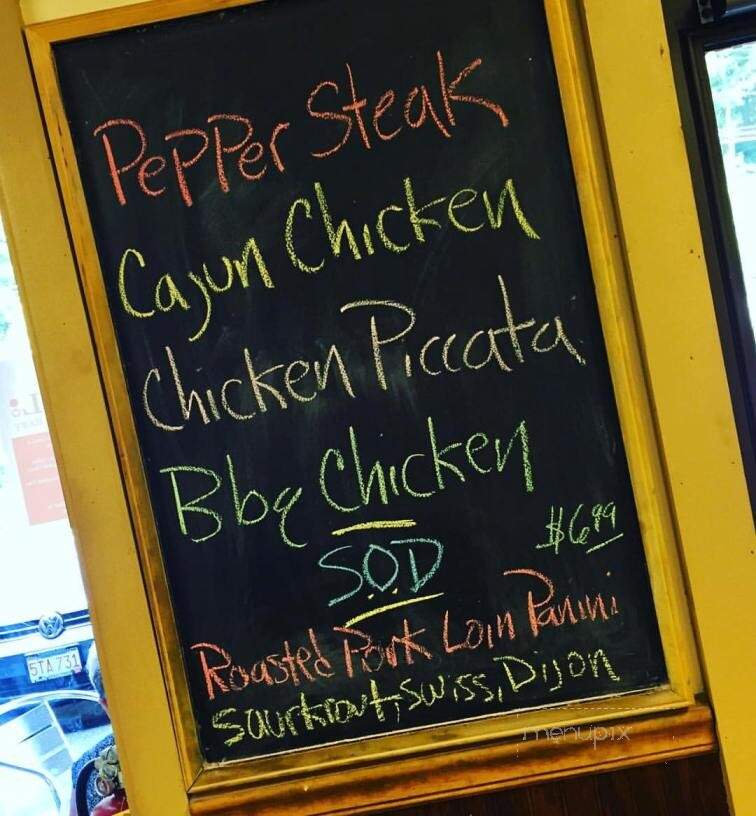 Pepper Steak
Cajun Chicken
Chicken Piccata
Bbq Chicken
$6.99
S.O.D
Roasted Pork Loin Panini
Saurkrout, Swiss, Dijon
menupix
5TA 731